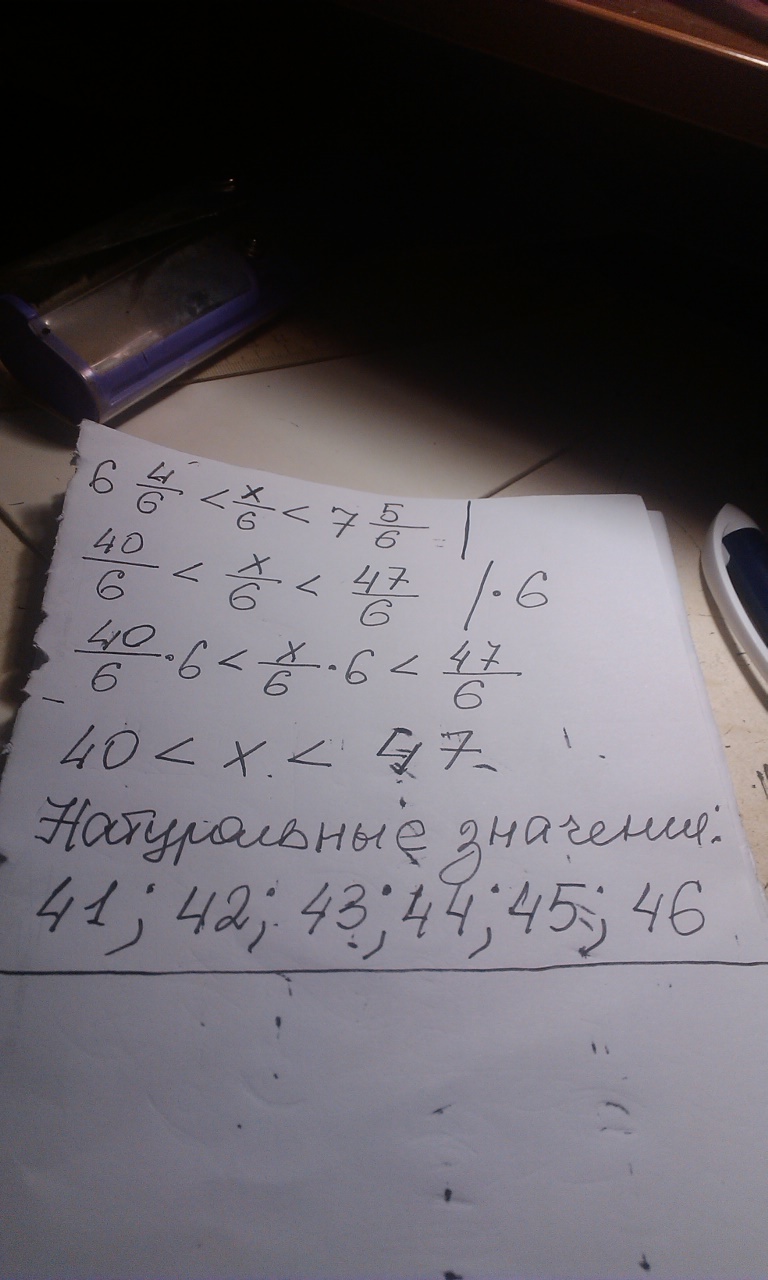 6 4/6 < x/6 < 7 5/6 |
40/6 < x/6 < 47/6 /·6
40/6·6 < x/6·6 < 47/6
40 < x < 47
Натуральные значения:
41; 42; 43; 44; 45; 46